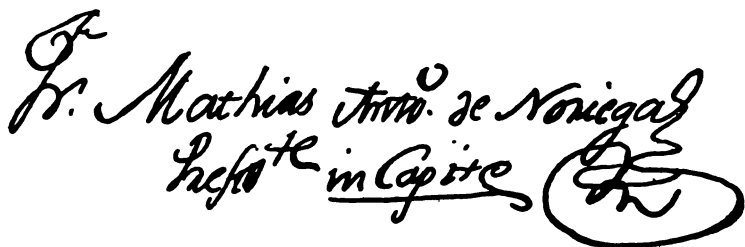 Fr. Mathias Anto. de Noriega
Presdte in Capite